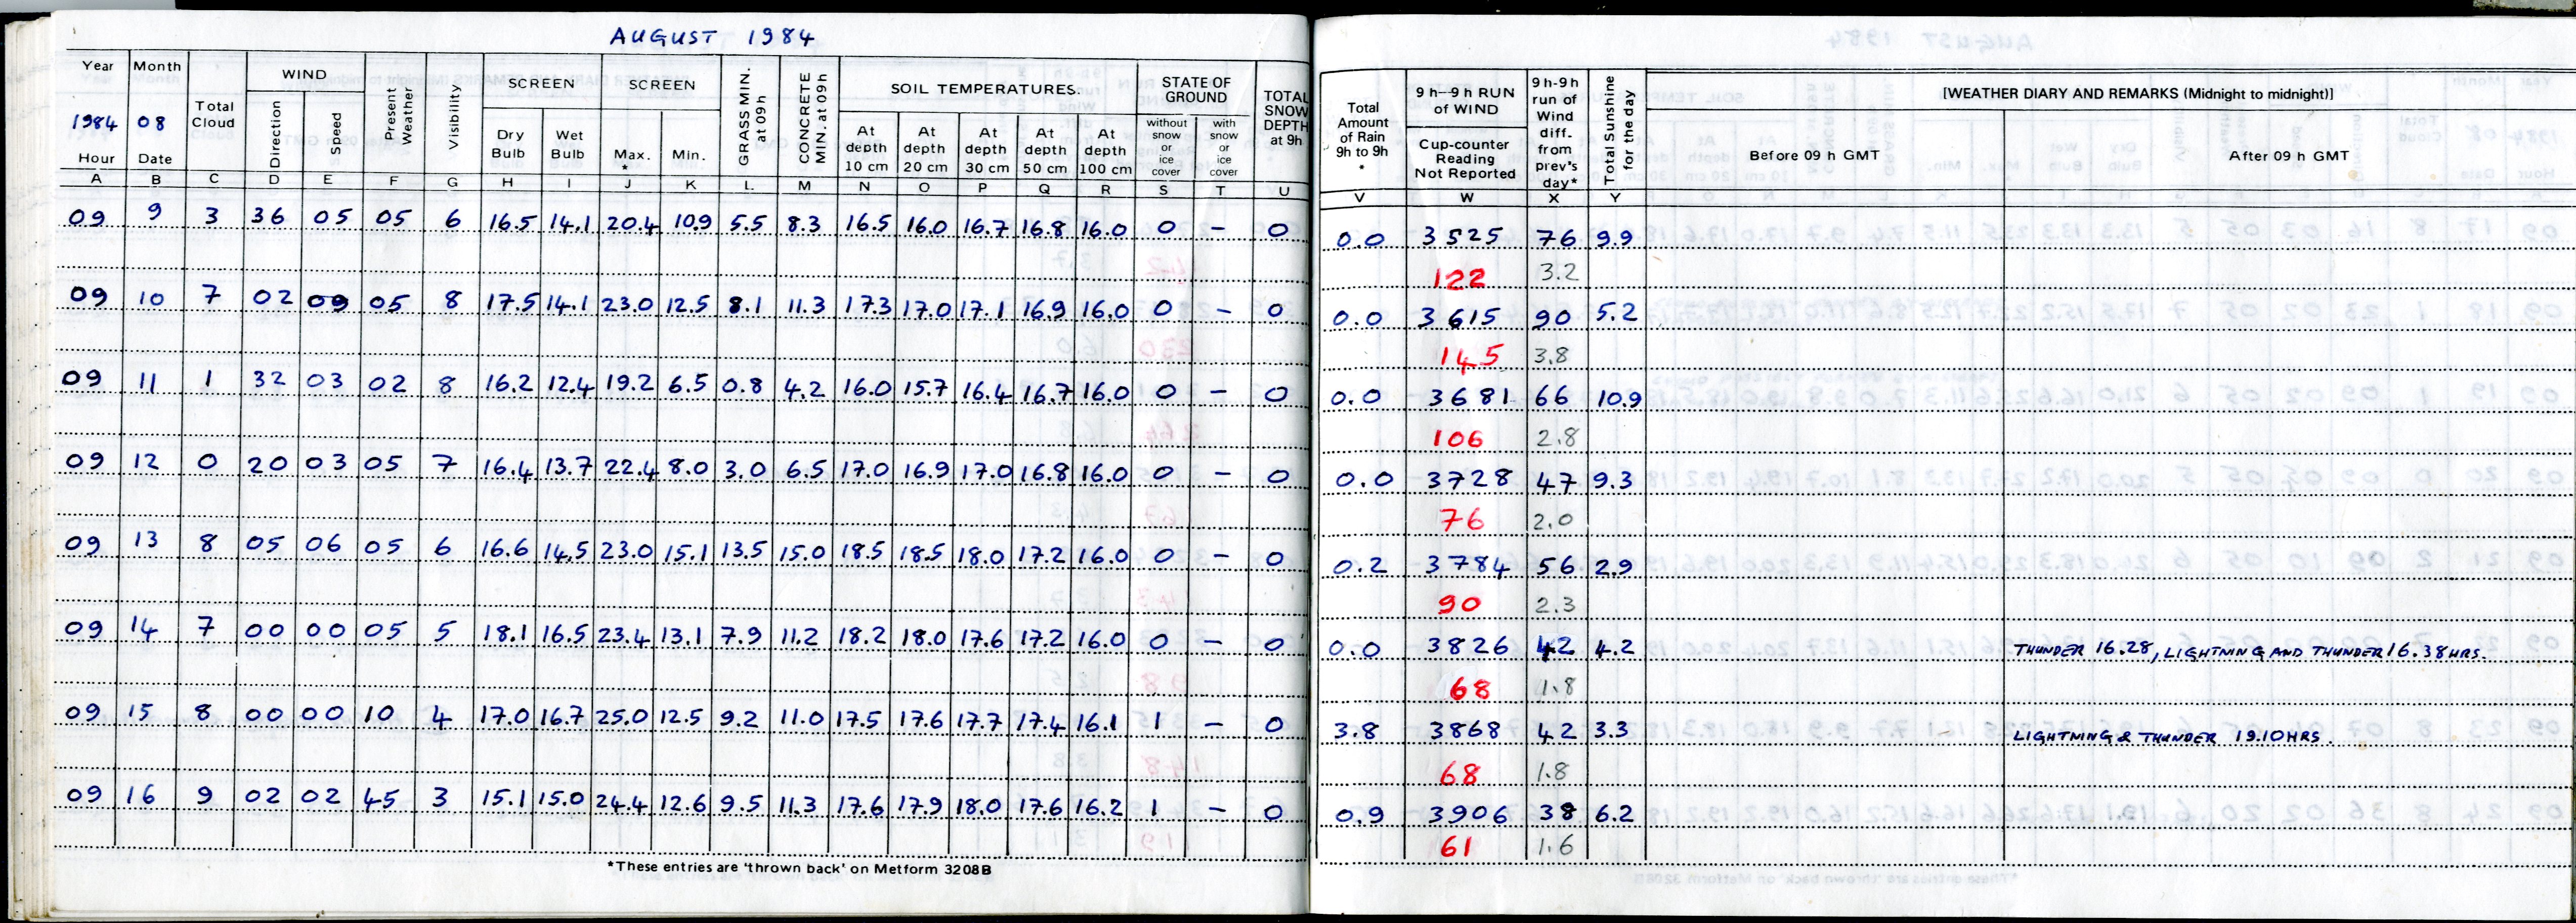 AUGUST 1984
Year Month Total Cloud WIND Present Weather Visibility SCREEN SCREEN GRASS MIN. at 09h CONCRETE MIN. at 09h SOIL TEMPERATURES. STATE OF GROUND TOTAL SNOW DEPTH at 9h Total Amount of Rain 9h to 9h * 9 h–9 h RUN of WIND 9 h-9h run of Wind diff. from prev's day* Total Sunshine for the day [WEATHER DIARY AND REMARKS (Midnight to midnight)]
1984 08 Direction Speed Dry Bulb Wet Bulb Max. * Min. At depth 10 cm At depth 20 cm At depth 30 cm At depth 50 cm At depth 100 cm without snow or ice cover with snow or ice cover Cup-counter Reading Not Reported Before 09 h GMT After 09 h GMT
Hour Date
A B C D E F G H I J K L. M N O P Q R S T U V W X Y
09 9 3 36 05 05 6 16.5 14.1 20.4 10.9 5.5 8.3 16.5 16.0 16.7 16.8 16.0 0 – 0 0.0 3525 76 9.9
122 3.2
09 10 7 02 09 05 8 17.5 14.1 23.0 12.5 8.1 11.3 17.3 17.0 17.1 16.9 16.0 0 – 0 0.0 3615 90 5.2
145 3.8
09 11 1 32 03 02 8 16.2 12.4 19.2 6.5 0.8 4.2 16.0 15.7 16.4 16.7 16.0 0 – 0 0.0 3681 66 10.9
106 2.8
09 12 0 20 03 05 7 16.4 13.7 22.4 8.0 3.0 6.5 17.0 16.9 17.0 16.8 16.0 0 – 0 0.0 3728 47 9.3
76 2.0
09 13 8 05 06 05 6 16.6 14.5 23.0 15.1 13.5 15.0 18.5 18.5 18.0 17.2 16.0 0 – 0 0.2 3784 56 2.9
90 2.3
09 14 7 00 00 05 5 18.1 16.5 23.4 13.1 7.9 11.2 18.2 18.0 17.6 17.2 16.0 0 – 0 0.0 3826 42 4.2 THUNDER 16.28, LIGHTNING AND THUNDER 16.38HRS.
68 1.8
09 15 8 00 00 10 4 17.0 16.7 25.0 12.5 9.2 11.0 17.5 17.6 17.7 17.4 16.1 1 – 0 3.8 3868 42 3.3 LIGHTNING & THUNDER 19.10HRS.
68 1.8
09 16 9 02 02 45 3 15.1 15.0 24.4 12.6 9.5 11.3 17.6 17.9 18.0 17.6 16.2 1 – 0 0.9 3906 38 6.2
61 1.6
*These entries are 'thrown back' on Metform 3208B